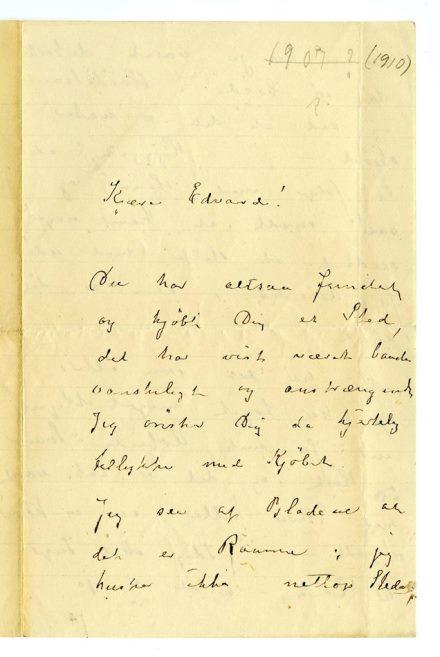 1907? (1910)
?
Kjære Edvard!
Du har altsaa fundet
og kjøbt Dig et Sted,
det har vist været baade
vanskeligt og anstrængende
Jeg ønsker Dig da hjertelig
tillykke med Kjøbet
Jeg ser af Bladene at
det er Ramme; jeg
husker ikke netop Stedet